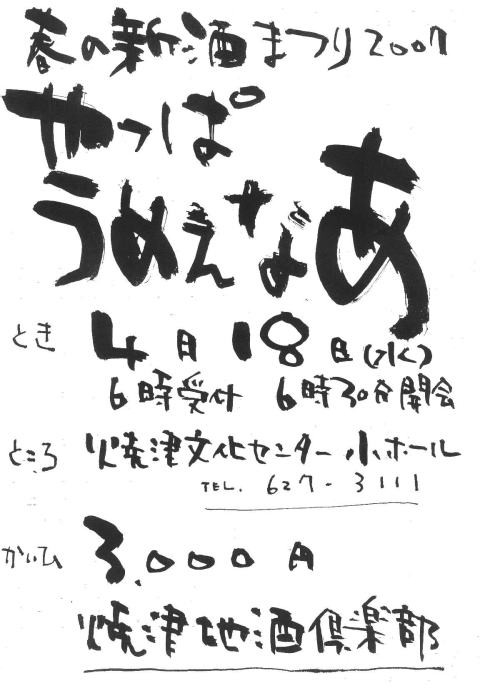 春の新酒まつり2007
やっぱ
うめぇなあ
とき 4月18日(水)
6時受付 6時30分開会
ところ 焼津文化センター小ホール
TEL. 627-3111
かいひ 3,000円
焼津地酒倶楽部